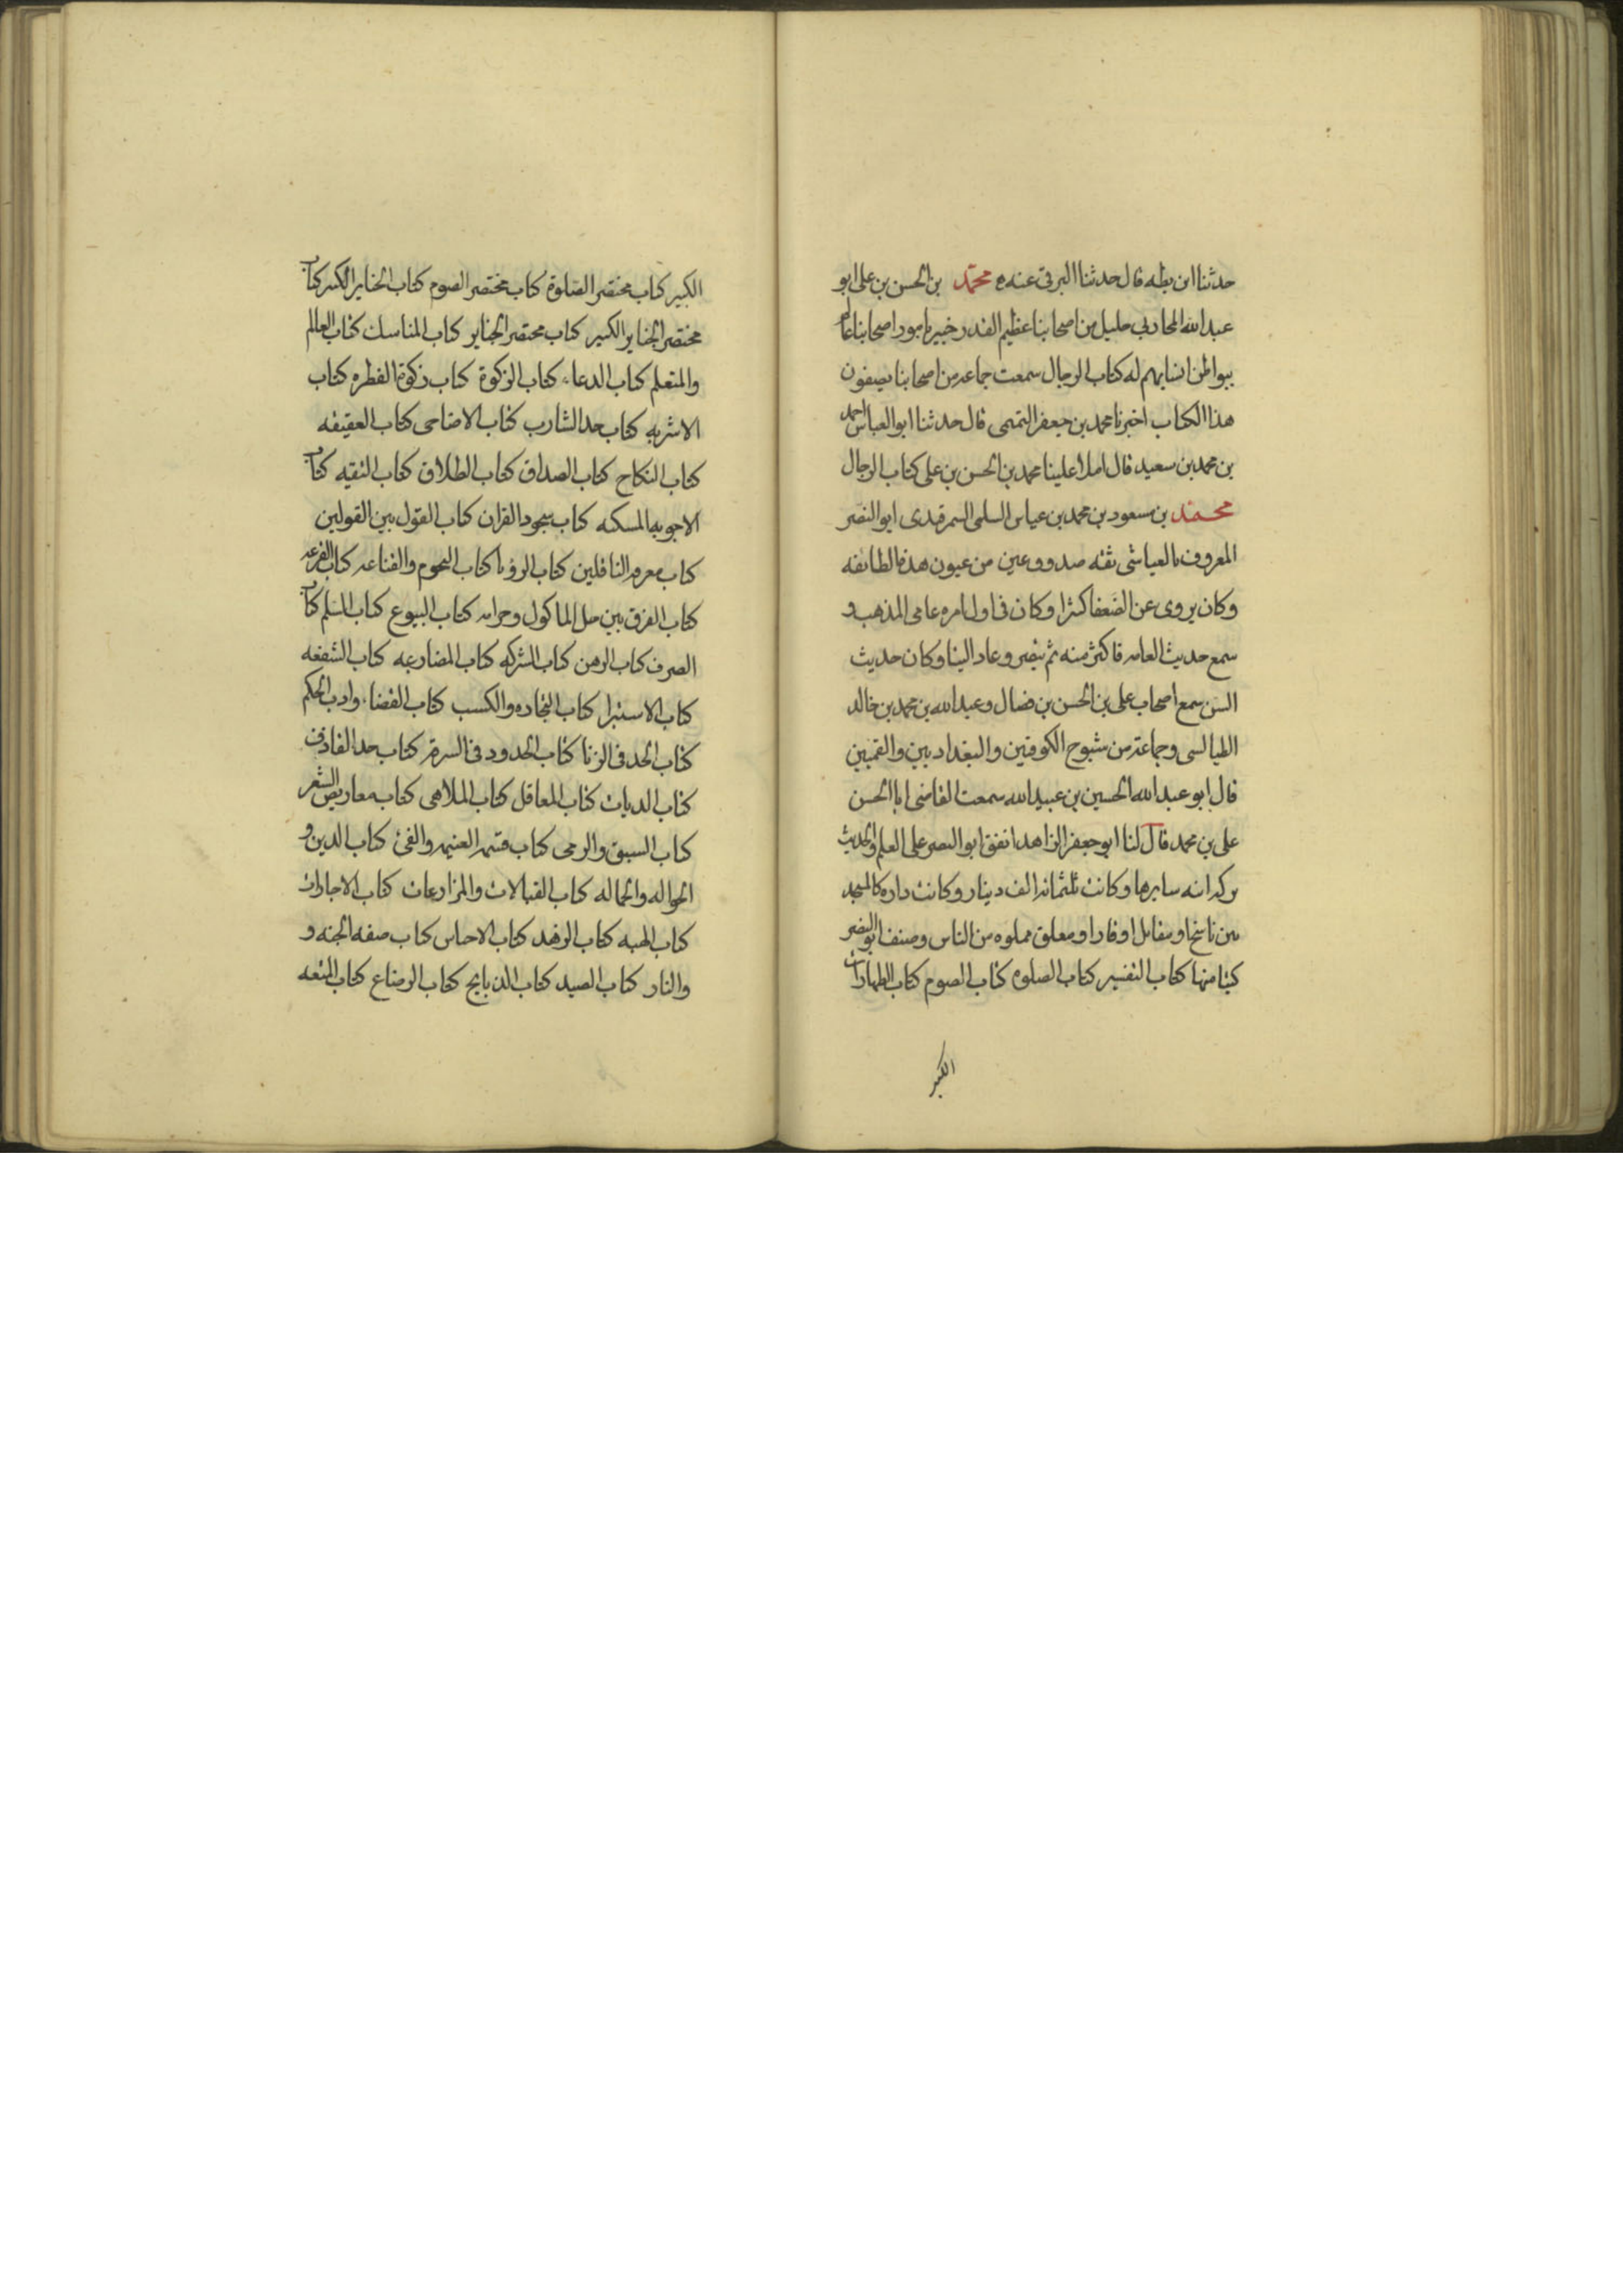 حدثنا ابن بطه قال حدثنا البرقى عنه ه محمد بن الحسن بن على ابو
عبد الله المحاربى جليل من اصحابنا عظيم القدر خبير بامور اصحابنا عالم
ببواطن انسابهم له كتاب الرجال سمعت جماعه من اصحابنا يصفون
هذا الكتاب اخبرنا محمد بن جعفر التميمى قال حدثنا ابو العباس احمد
بن محمد بن سعيد قال املا علينا محمد بن الحسن بن على كتاب الرجال
محمد بن مسعود بن محمد بن عياس السلمى السمرقندى ابو النضر
المعروف بالعياشى ثقه صدوق عين من عيون هذه الطائفه
وكان يروى عن الضعفا كثرا وكان فى اول امره عامى المذهب و
سمع حديث العامه فاكثر منه ثم تبصر وعاد الينا وكان حديث
السن سمع اصحاب على بن الحسن بن فضال وعبد الله بن محمد بن خالد
الطيالسى وجماعة من شيوخ الكوفين والبغداديين والقميين
قال ابو عبد الله الحسين بن عبيد الله سمعت القاضى ابا الحسن
على بن محمد قال لنا ابو جعفر الزاهد انفق ابو النصر على العلم والحديث
تركه ابيه سايرها وكانت ثلثمائه الف دينار وكانت داره كالمسجد
بين ناسخ او مقابل او قارا او معلق مملوه من الناس وصنف ابو النضر
كتبا منها كتاب التفسير كتاب الصلوه كتاب الصوم كتاب الطهارات
الكبير
الكبير كتاب مختصر الصلوة كتاب مختصر الصوم كتاب الجنايز الكبير كتاب
مختصر الجنايز الكبير كتاب مختصر الجنايز كتاب المناسك كتاب العالم
والمتعلم كتاب الدعاء كتاب الزكوة كتاب زكوة الفطره كتاب
الاشربه كتاب حد الشارب كتاب الاضاحى كتاب العقيقه
كتاب النكاح كتاب الصداق كتاب الطلاق كتاب التقيه كتاب
الاجوبه المسكته كتاب سجود القران كتاب القول بين القولين
كتاب معرفه الناقلين كتاب الرؤيا كتاب النجوم والقيافه كتاب القرعه
كتاب الفرق بين حل الماكول وحرامه كتاب البيوع كتاب السلم كتاب
الصرف كتاب الرهن كتاب الشركه كتاب المضاربه كتاب الشفعه
كتاب الاستبرا كتاب التجاره والكسب كتاب القضاء وادب الحكم
كتاب الحد فى الزنا كتاب الحدود فى السرقه كتاب حد القاذف
كتاب الديات كتاب المعاقل كتاب الملاهى كتاب معاريض الشعر
كتاب السبق والرمى كتاب قسمه الغنيمه والفئ كتاب الدين و
الحواله والحماله كتاب القبالات والمزارعات كتاب الاجارات
كتاب الهبه كتاب الزهد كتاب الاحباس كتاب صفه الجنه و
والنار كتاب الصيد كتاب الذبايح كتاب الرضاع كتاب المتعه